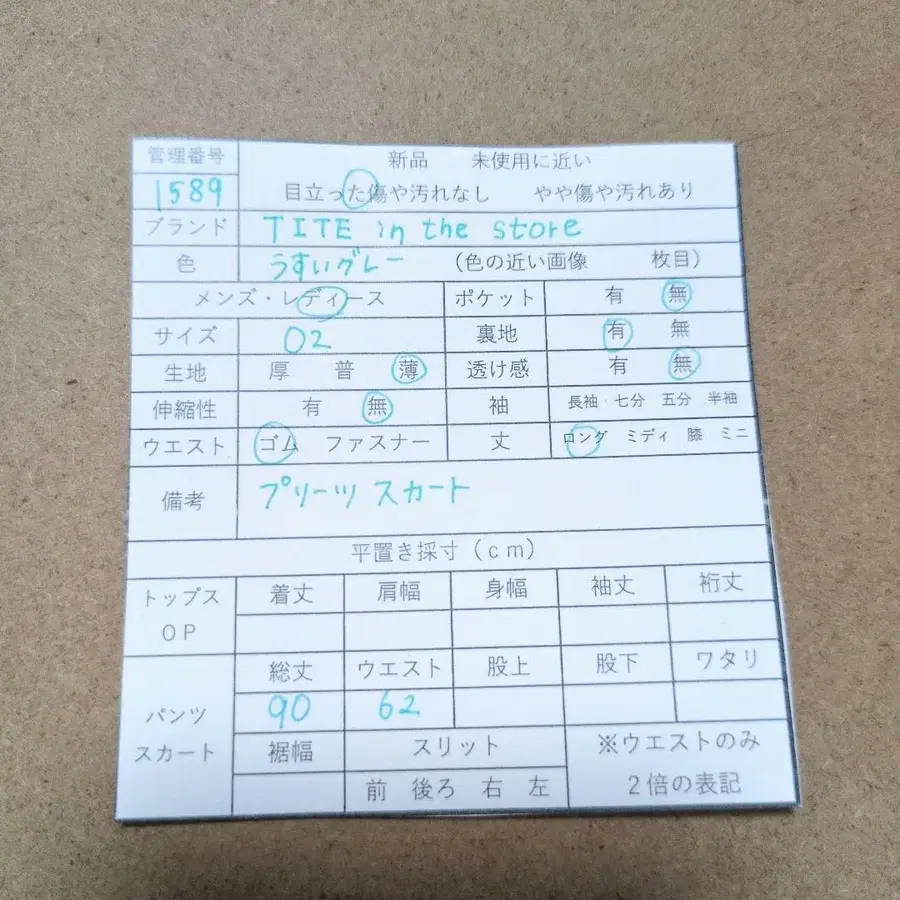 管理番号 新品 未使用に近い
1589 目立った傷や汚れなし やや傷や汚れあり
ブランド TITE in the store
色 うすいグレー (色の近い画像 枚目)
メンズ・レディース ポケット 有 無
サイズ 02 裏地 有 無
生地 厚 普 薄 透け感 有 無
伸縮性 有 無 袖 長袖 七分 五分 半袖
ウエスト ゴム ファスナー 丈 ロング ミディ 膝 ミニ
備考 プリーツスカート
平置き採寸(cm)
トップス OP 着丈 肩幅 身幅 袖丈 裄丈
パンツ スカート 総丈 ウエスト 股上 股下 ワタリ
90 62
裾幅 スリット ※ウエストのみ
前 後ろ 右 左 2倍の表記